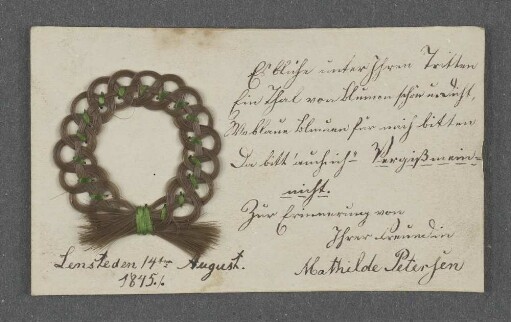 Es blühe unter Ihren Tritten
Ein Thal von Blumen schön und dicht,
Wo blaue Blumen für mich bitten
Da bitt' auch ich "Vergißmein-
nicht.
Zur Erinnerung von
Ihrer Freundin
Mathilde Petersen
Lensteden 14ten August.
1845./.